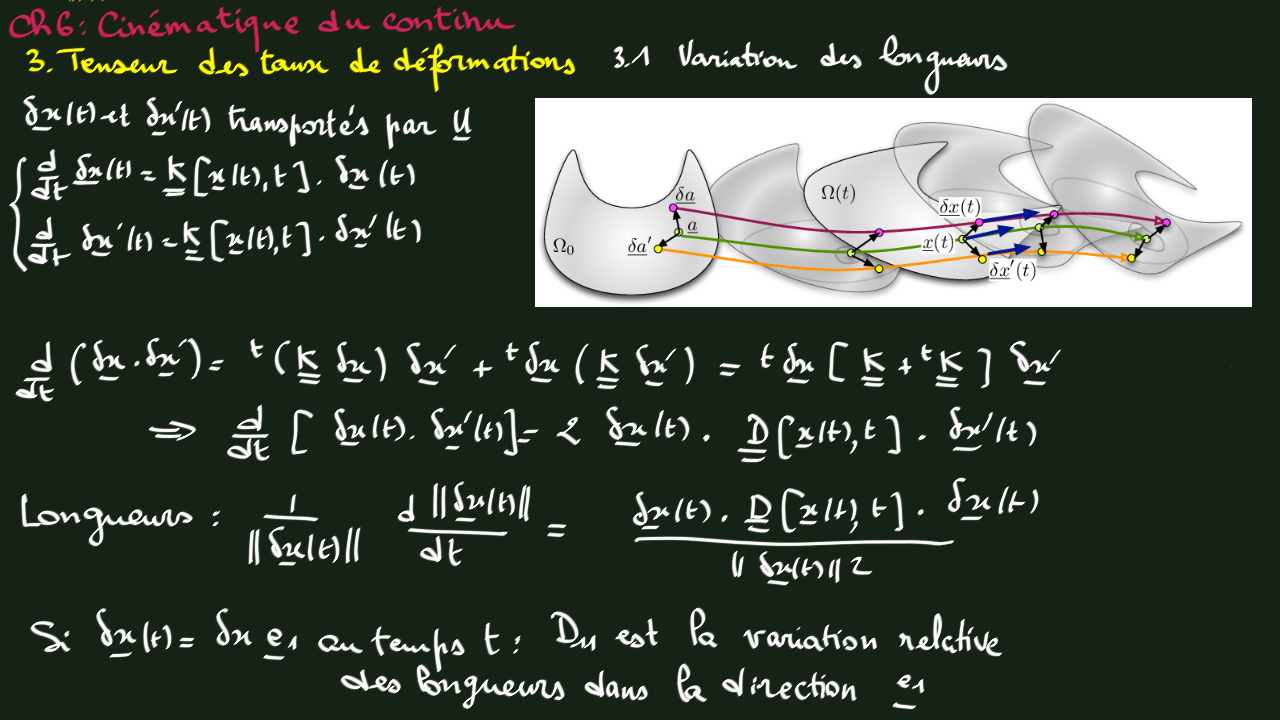 Ch6: Cinématique du continu
3. Tenseur des taux de déformations 3.1 Variation des longueurs
δx(t) et δx'(t) transportés par U
d/dt δx(t) = K [x(t), t] . δx(t)
d/dt δx'(t) = K [x(t), t] . δx'(t)
Ω₀ δa a δa' Ω(t) δx(t) x(t) δx'(t)
d/dt (δx . δx') = ᵗ(K δx) δx' + ᵗδx (K δx') = ᵗδx [K + ᵗK] δx'
⇒ d/dt [δx(t) . δx'(t)] = 2 δx(t) . D[x(t), t] . δx'(t)
Longueurs : 1/||δx(t)|| d||δx(t)||/dt = δx(t) . D[x(t), t] . δx(t) / ||δx(t)||²
Si δx(t) = δx e₁ au temps t : D₁₁ est la variation relative
des longueurs dans la direction e₁